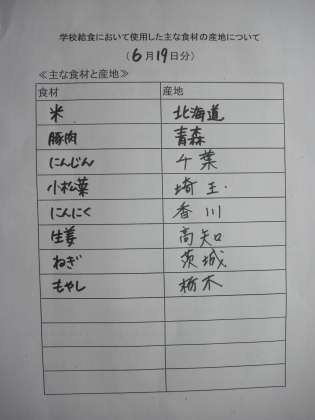 学校給食において使用した主な食材の産地について
(6月19日分)
≪主な食材と産地≫
食材 産地
米 北海道
豚肉 青森
にんじん 千葉
小松菜 埼玉
にんにく 香川
生姜 高知
ねぎ 茨城
もやし 栃木